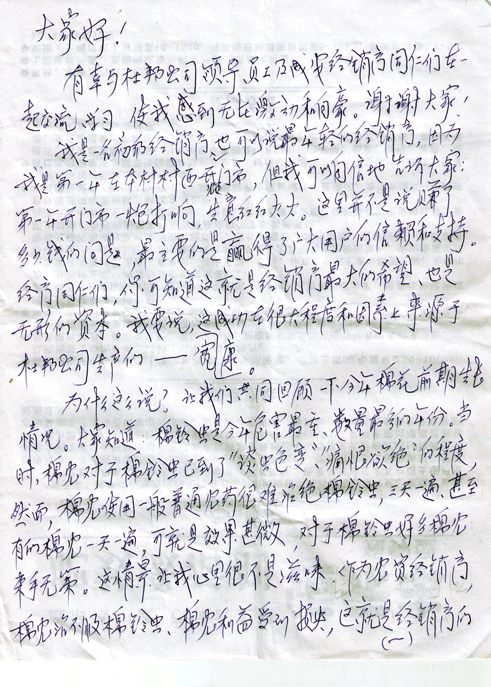 大家好！
有幸与杜邦公司领导员工及成安经销商同仁们在一
起交流学习，使我感到无比激动和自豪。谢谢大家！
我是一名初级经销商，也可以说最年轻的经销商，因为
我是第一年在本村村西开门市，但我可以自信地告诉大家：
第一年开门市一炮打响，生意红红火火。这里并不是说赚了
多少钱的问题，最主要的是赢得了广大用户的信赖和支持。
经商同仁们，你可知道这就是经销商最大的希望、也是
无形的资本。我要说，这成功在很大程度和因素上来源于
杜邦公司生产的——万灵。
为什么这么说？让我们共同回顾一下今年棉花前期生长
情况。大家知道：棉铃虫是今年危害最重、数量最多的年份。当
时，棉农对于棉铃虫已到了“谈虫色变”、“痛恨欲绝”的程度，
然而，棉农使用一般普通农药很难治绝棉铃虫，三天一遍、甚至
有的棉农一天一遍，可就是效果甚微，对于棉铃虫好多棉农
束手无策。这情景让我心里很不是滋味，作为农资经销商，
棉农治不服棉铃虫、棉农利益受到损失，已就是经销商的
(一)